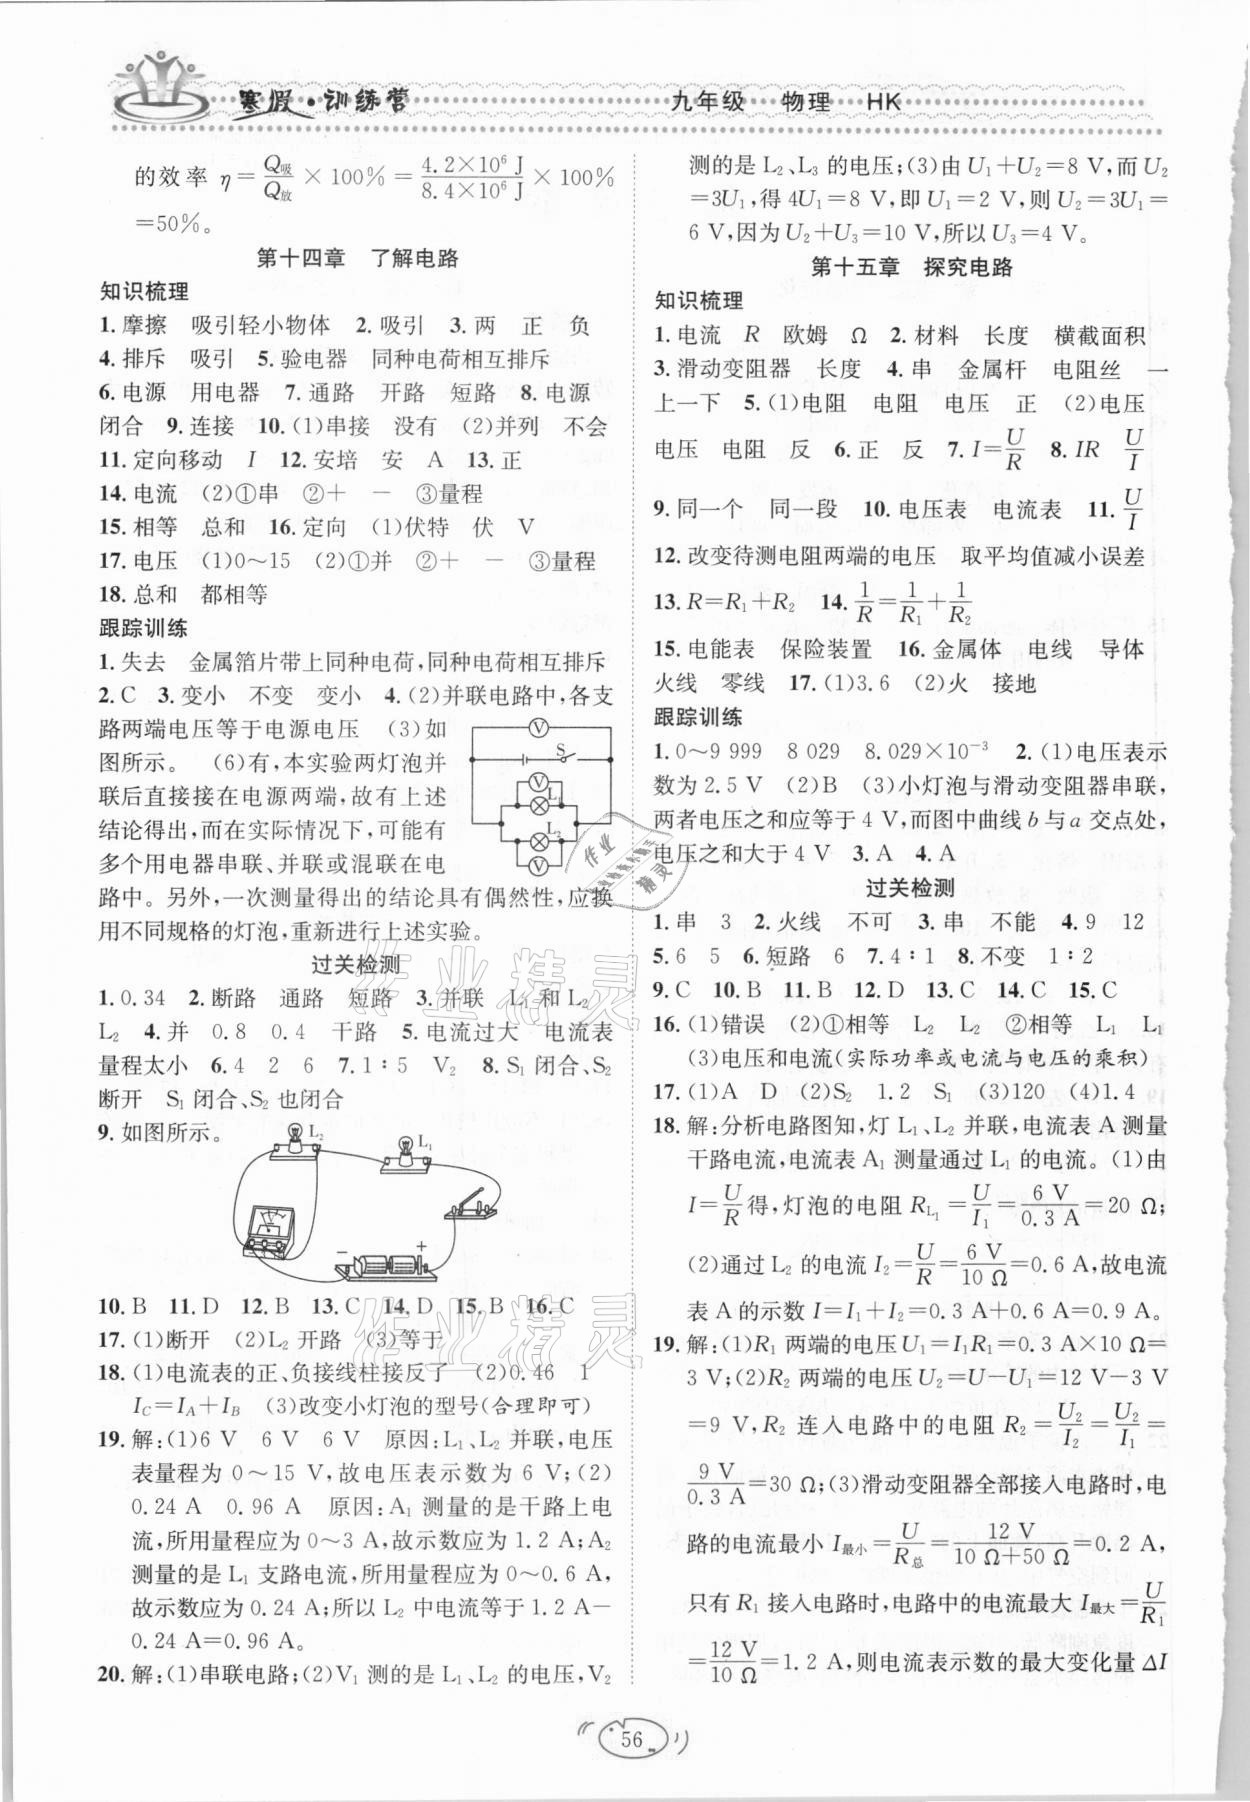 寒假·训练营
九年级 物理 HK
的效率 η=Q吸/Q放×100%=4.2×10⁶ J/8.4×10⁶ J×100%
=50%。
第十四章 了解电路
知识梳理
1.摩擦 吸引轻小物体 2.吸引 3.两 正 负
4.排斥 吸引 5.验电器 同种电荷相互排斥
6.电源 用电器 7.通路 开路 短路 8.电源
闭合 9.连接 10.(1)串接 没有 (2)并列 不会
11.定向移动 I 12.安培 安 A 13.正
14.电流 (2)①串 ②+ − ③量程
15.相等 总和 16.定向 (1)伏特 伏 V
17.电压 (1)0～15 (2)①并 ②+ − ③量程
18.总和 都相等
跟踪训练
1.失去 金属箔片带上同种电荷,同种电荷相互排斥
2.C 3.变小 不变 变小 4.(2)并联电路中,各支
路两端电压等于电源电压 (3)如
图所示。 (6)有,本实验两灯泡并
联后直接接在电源两端,故有上述
结论得出,而在实际情况下,可能有
多个用电器串联、并联或混联在电
路中。另外,一次测量得出的结论具有偶然性,应换
用不同规格的灯泡,重新进行上述实验。
V
S
V
L₁
L₂
V
过关检测
1.0.34 2.断路 通路 短路 3.并联 L₁和L₂
L₂ 4.并 0.8 0.4 干路 5.电流过大 电流表
量程太小 6.4 2 6 7.1∶5 V₂ 8.S₁闭合、S₂
断开 S₁闭合、S₂也闭合
9.如图所示。
L₂
L₁
− +
10.B 11.D 12.B 13.C 14.D 15.B 16.C
17.(1)断开 (2)L₂开路 (3)等于
18.(1)电流表的正、负接线柱接反了 (2)0.46 1
I_C=I_A+I_B (3)改变小灯泡的型号(合理即可)
19.解:(1)6 V 6 V 6 V 原因:L₁、L₂并联,电压
表量程为0～15 V,故电压表示数为6 V;(2)
0.24 A 0.96 A 原因:A₁测量的是干路上电
流,所用量程应为0～3 A,故示数应为1.2 A;A₂
测量的是L₁支路电流,所用量程应为0～0.6 A,
故示数应为0.24 A;所以L₂中电流等于1.2 A−
0.24 A=0.96 A。
20.解:(1)串联电路;(2)V₁测的是L₁、L₂的电压,V₂
测的是L₂、L₃的电压;(3)由U₁+U₂=8 V,而U₂
=3U₁,得4U₁=8 V,即U₁=2 V,则U₂=3U₁=
6 V,因为U₂+U₃=10 V,所以U₃=4 V。
第十五章 探究电路
知识梳理
1.电流 R 欧姆 Ω 2.材料 长度 横截面积
3.滑动变阻器 长度 4.串 金属杆 电阻丝 一
上一下 5.(1)电阻 电阻 电压 正 (2)电压
电压 电阻 反 6.正 反 7.I=U/R 8.IR U/I
9.同一个 同一段 10.电压表 电流表 11.U/I
12.改变待测电阻两端的电压 取平均值减小误差
13.R=R₁+R₂ 14.1/R=1/R₁+1/R₂
15.电能表 保险装置 16.金属体 电线 导体
火线 零线 17.(1)3.6 (2)火 接地
跟踪训练
1.0～9 999 8 029 8.029×10⁻³ 2.(1)电压表示
数为2.5 V (2)B (3)小灯泡与滑动变阻器串联,
两者电压之和应等于4 V,而图中曲线b与a交点处,
电压之和大于4 V 3.A 4.A
过关检测
1.串 3 2.火线 不可 3.串 不能 4.9 12
5.6 5 6.短路 6 7.4∶1 8.不变 1∶2
9.C 10.B 11.B 12.D 13.C 14.C 15.C
16.(1)错误 (2)①相等 L₂ L₂ ②相等 L₁ L₁
(3)电压和电流(实际功率或电流与电压的乘积)
17.(1)A D (2)S₂ 1.2 S₁ (3)120 (4)1.4
18.解:分析电路图知,灯L₁、L₂并联,电流表A测量
干路电流,电流表A₁测量通过L₁的电流。(1)由
I=U/R得,灯泡的电阻R_L₁=U/I₁=6 V/0.3 A=20 Ω;
(2)通过L₂的电流I₂=U/R=6 V/10 Ω=0.6 A,故电流
表A的示数I=I₁+I₂=0.3 A+0.6 A=0.9 A。
19.解:(1)R₁两端的电压U₁=I₁R₁=0.3 A×10 Ω=
3 V;(2)R₂两端的电压U₂=U−U₁=12 V−3 V
=9 V,R₂连入电路中的电阻R₂=U₂/I₂=U₂/I₁=
9 V/0.3 A=30 Ω;(3)滑动变阻器全部接入电路时,电
路的电流最小I最小=U/R总=12 V/10 Ω+50 Ω=0.2 A,
只有R₁接入电路时,电路中的电流最大I最大=U/R₁
=12 V/10 Ω=1.2 A,则电流表示数的最大变化量ΔI
作业精灵
作业精灵
作业精灵
56